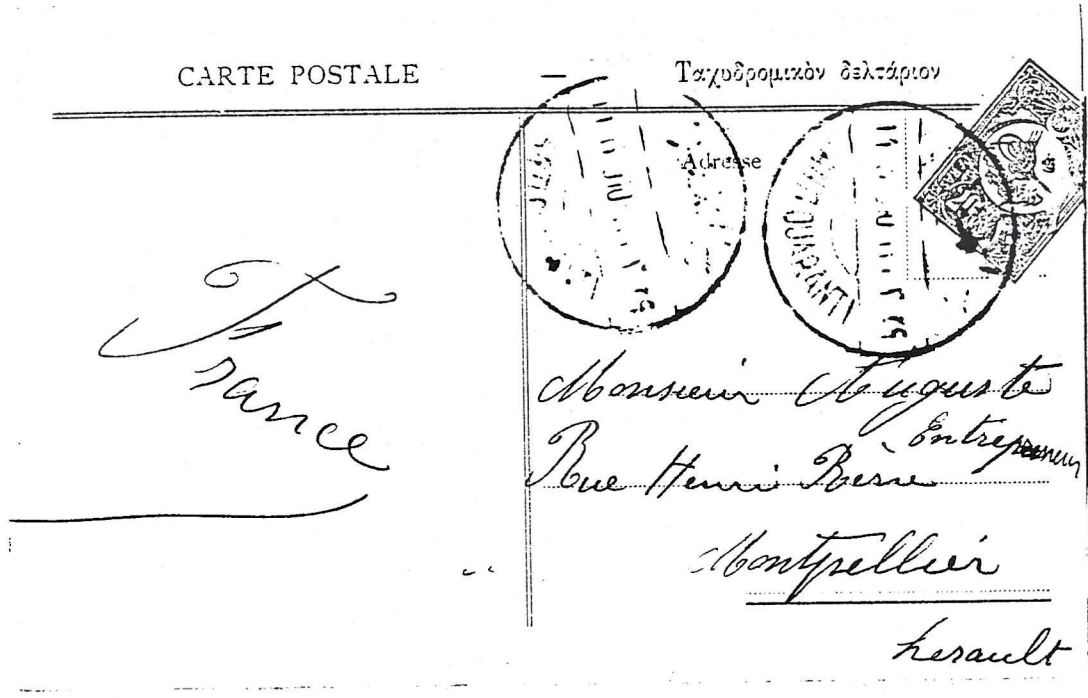 CARTE POSTALE
Ταχυδρομικὸν δελτάριον
Adresse
France
Monsieur Auguste
Entrepreneur
Rue Henri
Montpellier
herault